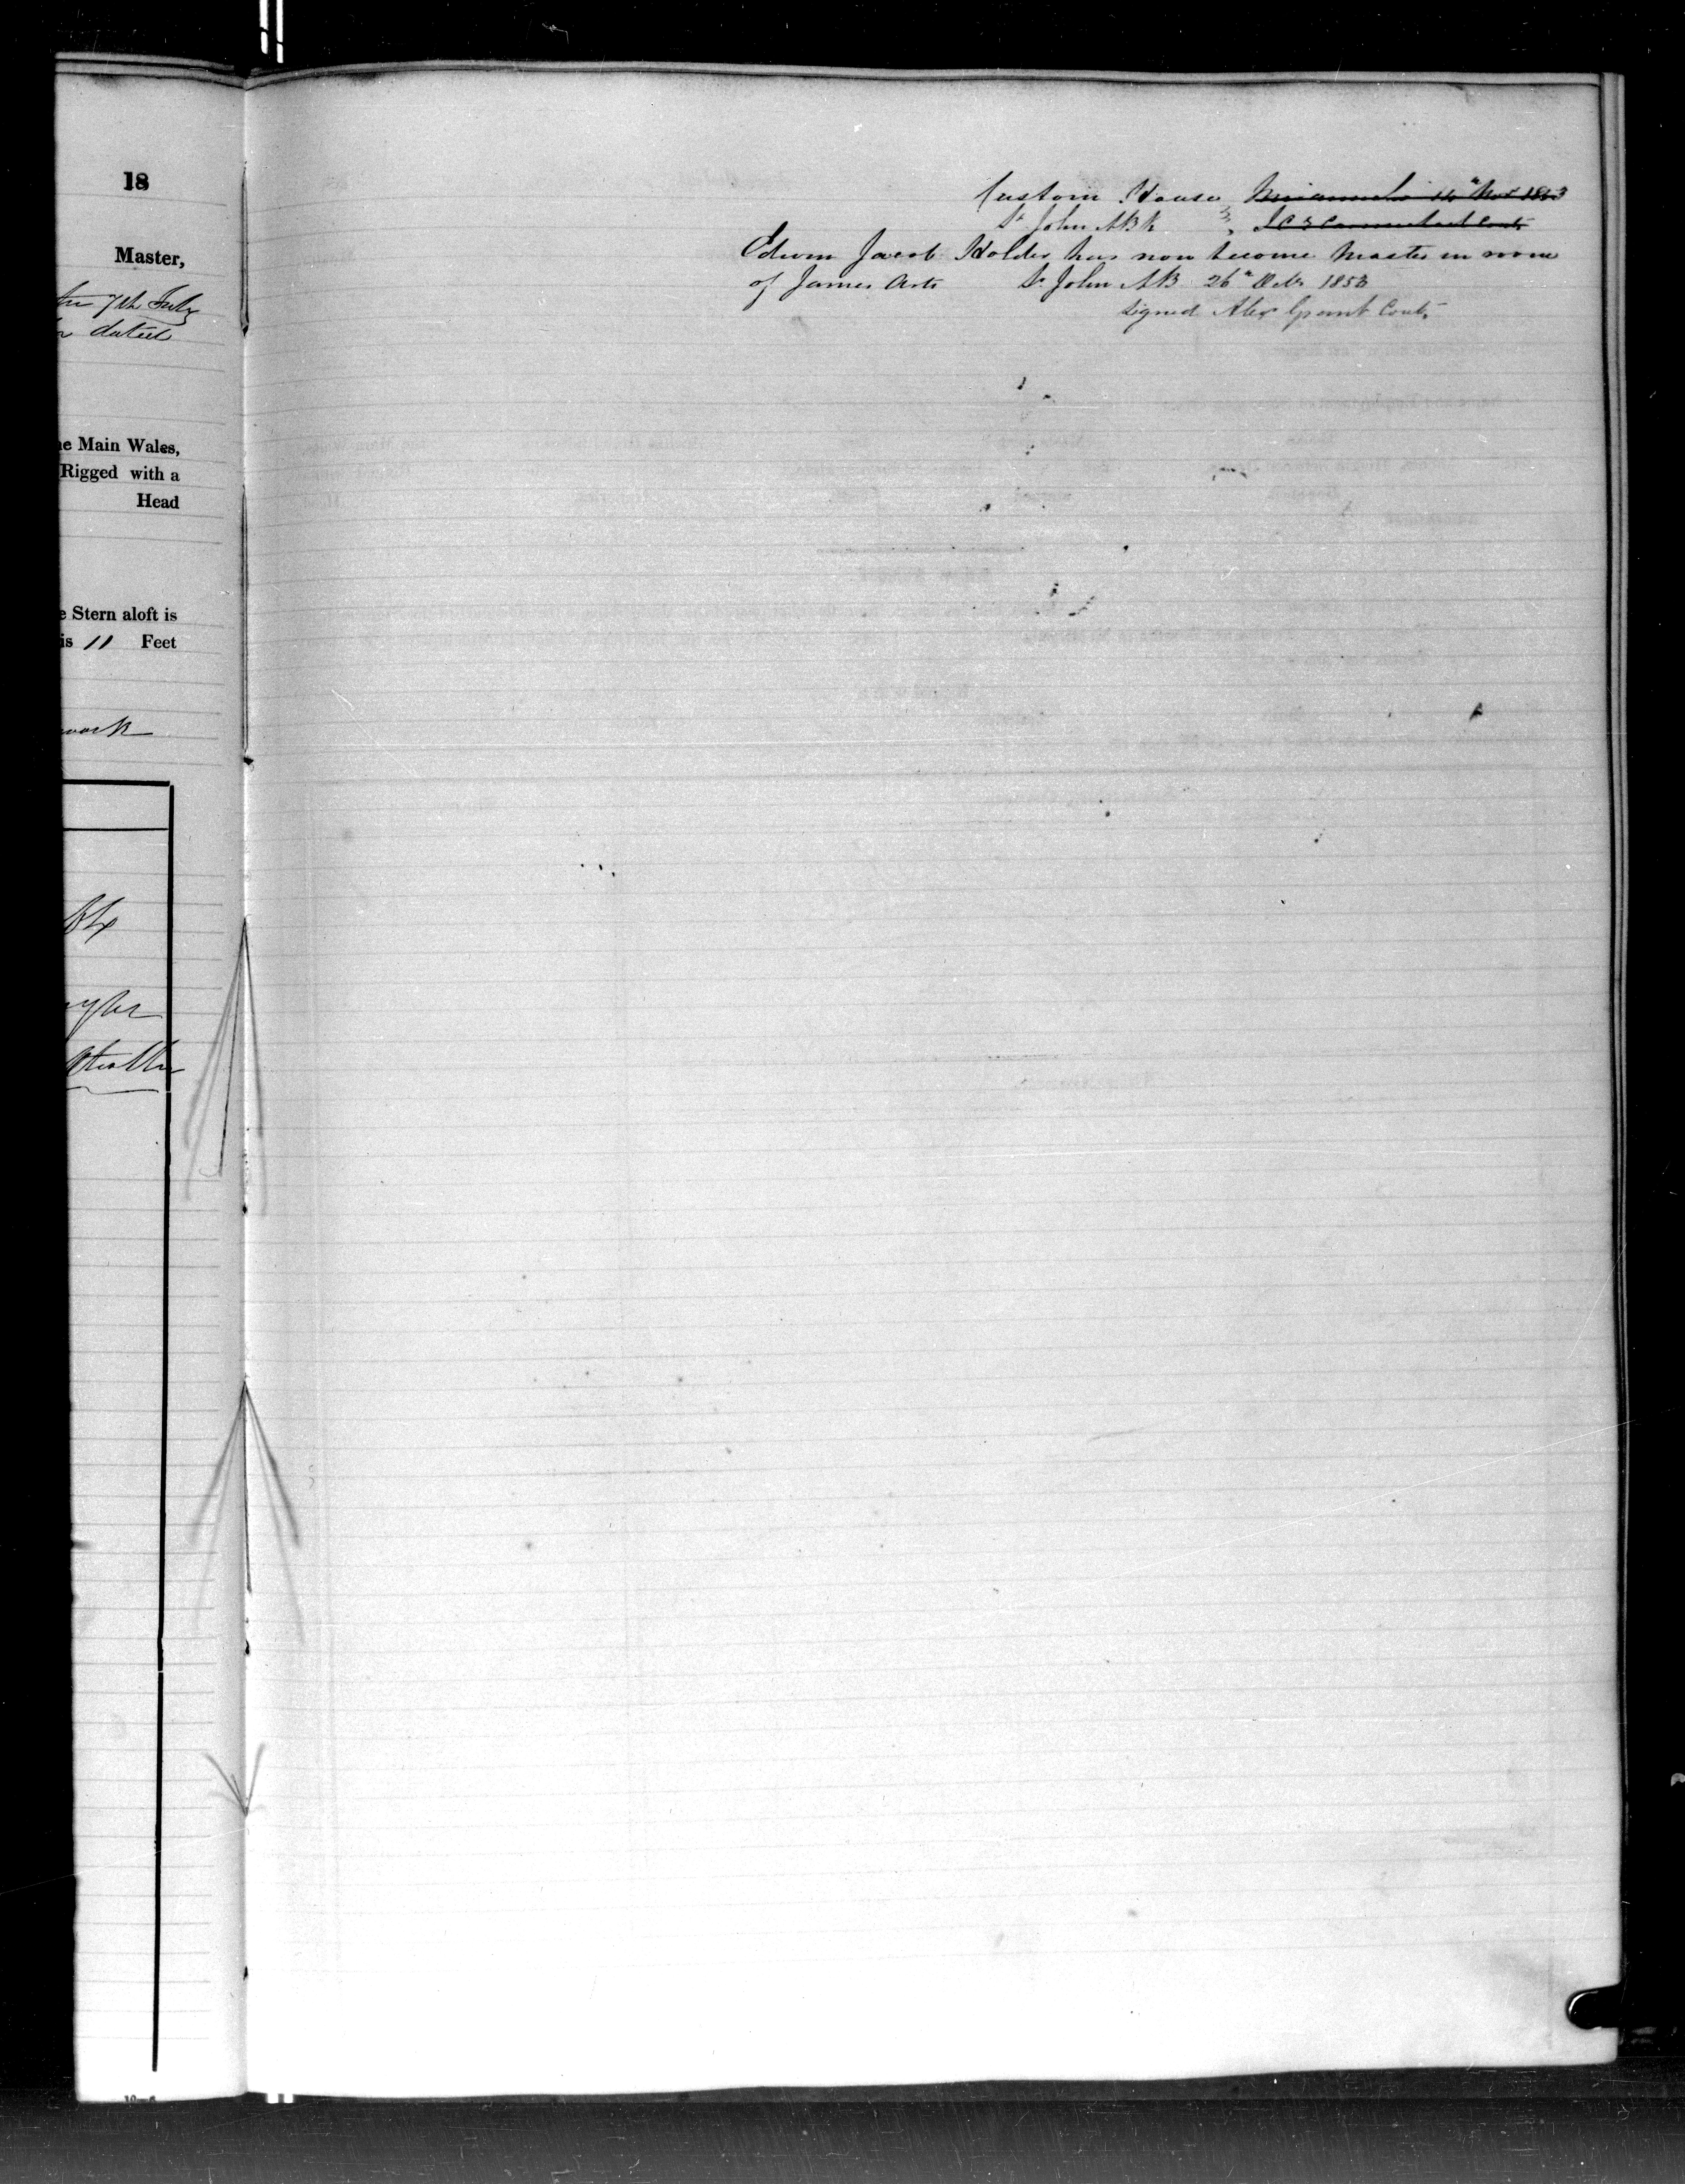 18
Master,
7th July
dated
Main Wales,
Rigged with a
Head
Stern aloft is
is 11 Feet
Custom House 14th Nov 1853
St John NBk
Edwin Jacob Holder has now become Master in room
of James St John NB 26th 1853
signed Alex Grant Cont.